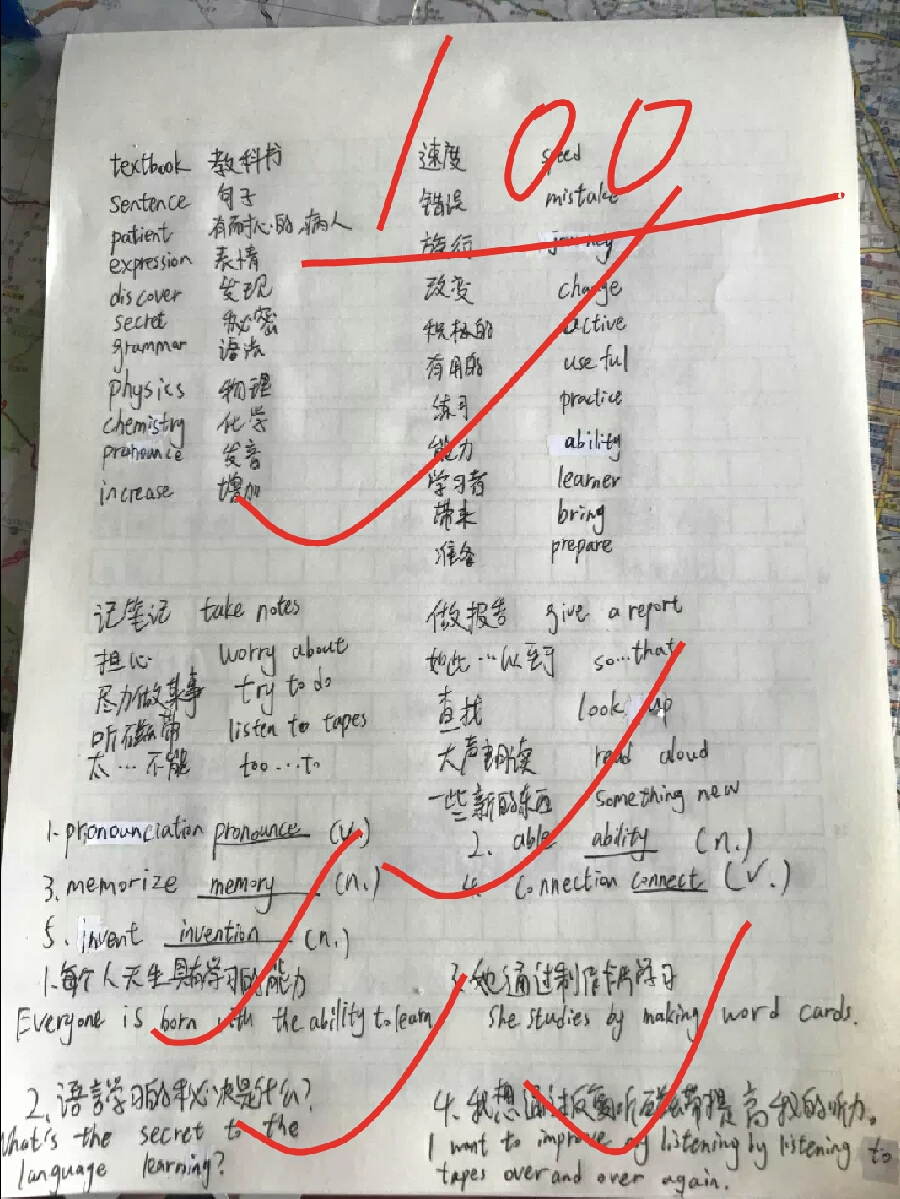 100
textbook 教科书
sentence 句子
patient 有耐心的,病人
expression 表情
discover 发现
secret 秘密
grammar 语法
physics 物理
chemistry 化学
pronounce 发音
increase 增加
速度 speed
错误 mistake
旅行 journey
改变 change
积极的 active
有用的 useful
练习 practice
能力 ability
学习者 learner
带来 bring
准备 prepare
记笔记 take notes
担心 worry about
尽力做某事 try to do
听磁带 listen to tapes
太…不能 too...to
做报告 give a report
如此…以至于 so...that
查找 look up
大声朗读 read aloud
一些新的东西 something new
1. pronounciation pronounce (v.)
2. able ability (n.)
3. memorize memory (n.)
4. connection connect (v.)
5. invent invention (n.)
1.每个人天生具有学习的能力
Everyone is born with the ability to learn
2.语言学习的秘决是什么?
What's the secret to the
language learning?
3.她通过制作卡片学习
She studies by making word cards.
4.我想通过反复听磁带提高我的听力。
I want to improve my listening by listening to
tapes over and over again.